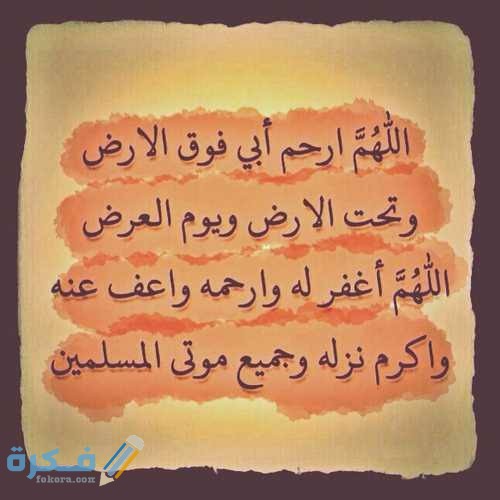 اللهُمَّ ارحم أبي فوق الارض
وتحت الارض ويوم العرض
اللهُمَّ أغفر له وارحمه واعف عنه
واكرم نزله وجميع موتى المسلمين
فكرة
fekera.com